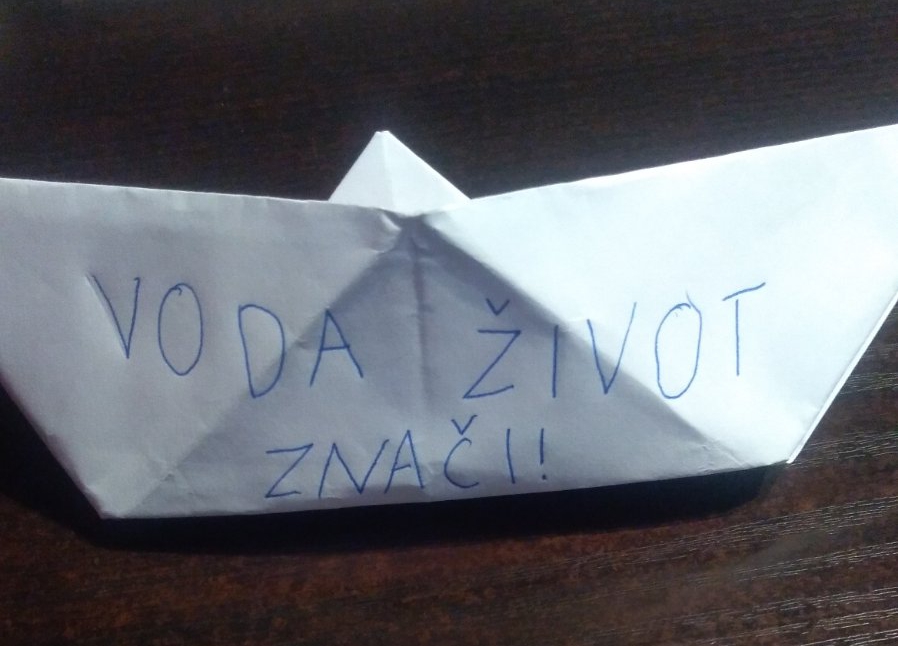 VODA ŽIVOT
ZNAČI!